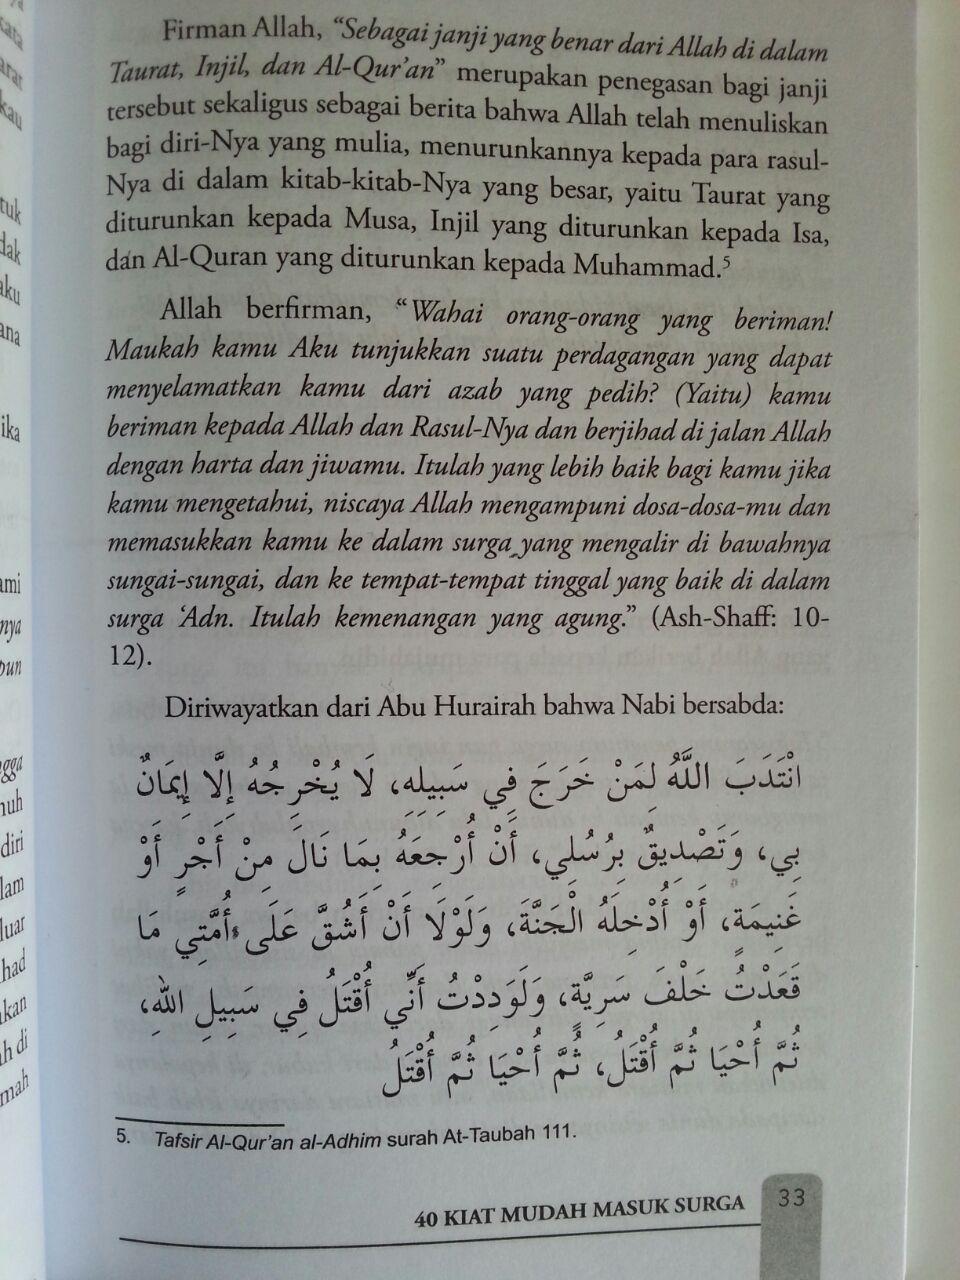 Firman Allah, “Sebagai janji yang benar dari Allah di dalam
Taurat, Injil, dan Al-Qur’an” merupakan penegasan bagi janji
tersebut sekaligus sebagai berita bahwa Allah telah menuliskan
bagi diri-Nya yang mulia, menurunkannya kepada para rasul-
Nya di dalam kitab-kitab-Nya yang besar, yaitu Taurat yang
diturunkan kepada Musa, Injil yang diturunkan kepada Isa,
dan Al-Quran yang diturunkan kepada Muhammad.⁵
Allah berfirman, “Wahai orang-orang yang beriman!
Maukah kamu Aku tunjukkan suatu perdagangan yang dapat
menyelamatkan kamu dari azab yang pedih? (Yaitu) kamu
beriman kepada Allah dan Rasul-Nya dan berjihad di jalan Allah
dengan harta dan jiwamu. Itulah yang lebih baik bagi kamu jika
kamu mengetahui, niscaya Allah mengampuni dosa-dosa-mu dan
memasukkan kamu ke dalam surga yang mengalir di bawahnya
sungai-sungai, dan ke tempat-tempat tinggal yang baik di dalam
surga ‘Adn. Itulah kemenangan yang agung.” (Ash-Shaff: 10-
12).
Diriwayatkan dari Abu Hurairah bahwa Nabi bersabda:
انْتَدَبَ اللَّهُ لِمَنْ خَرَجَ فِي سَبِيلِهِ، لَا يُخْرِجُهُ إِلَّا إِيمَانٌ
بِي، وَتَصْدِيقٌ بِرُسُلِي، أَنْ أُرْجِعَهُ بِمَا نَالَ مِنْ أَجْرٍ أَوْ
غَنِيمَةٍ، أَوْ أُدْخِلَهُ الْجَنَّةَ، وَلَوْلَا أَنْ أَشُقَّ عَلَى أُمَّتِي مَا
قَعَدْتُ خَلْفَ سَرِيَّةٍ، وَلَوَدِدْتُ أَنِّي أُقْتَلُ فِي سَبِيلِ اللهِ،
ثُمَّ أُحْيَا ثُمَّ أُقْتَلُ، ثُمَّ أُحْيَا ثُمَّ أُقْتَلُ
5. Tafsir Al-Qur’an al-Adhim surah At-Taubah 111.
40 KIAT MUDAH MASUK SURGA 33